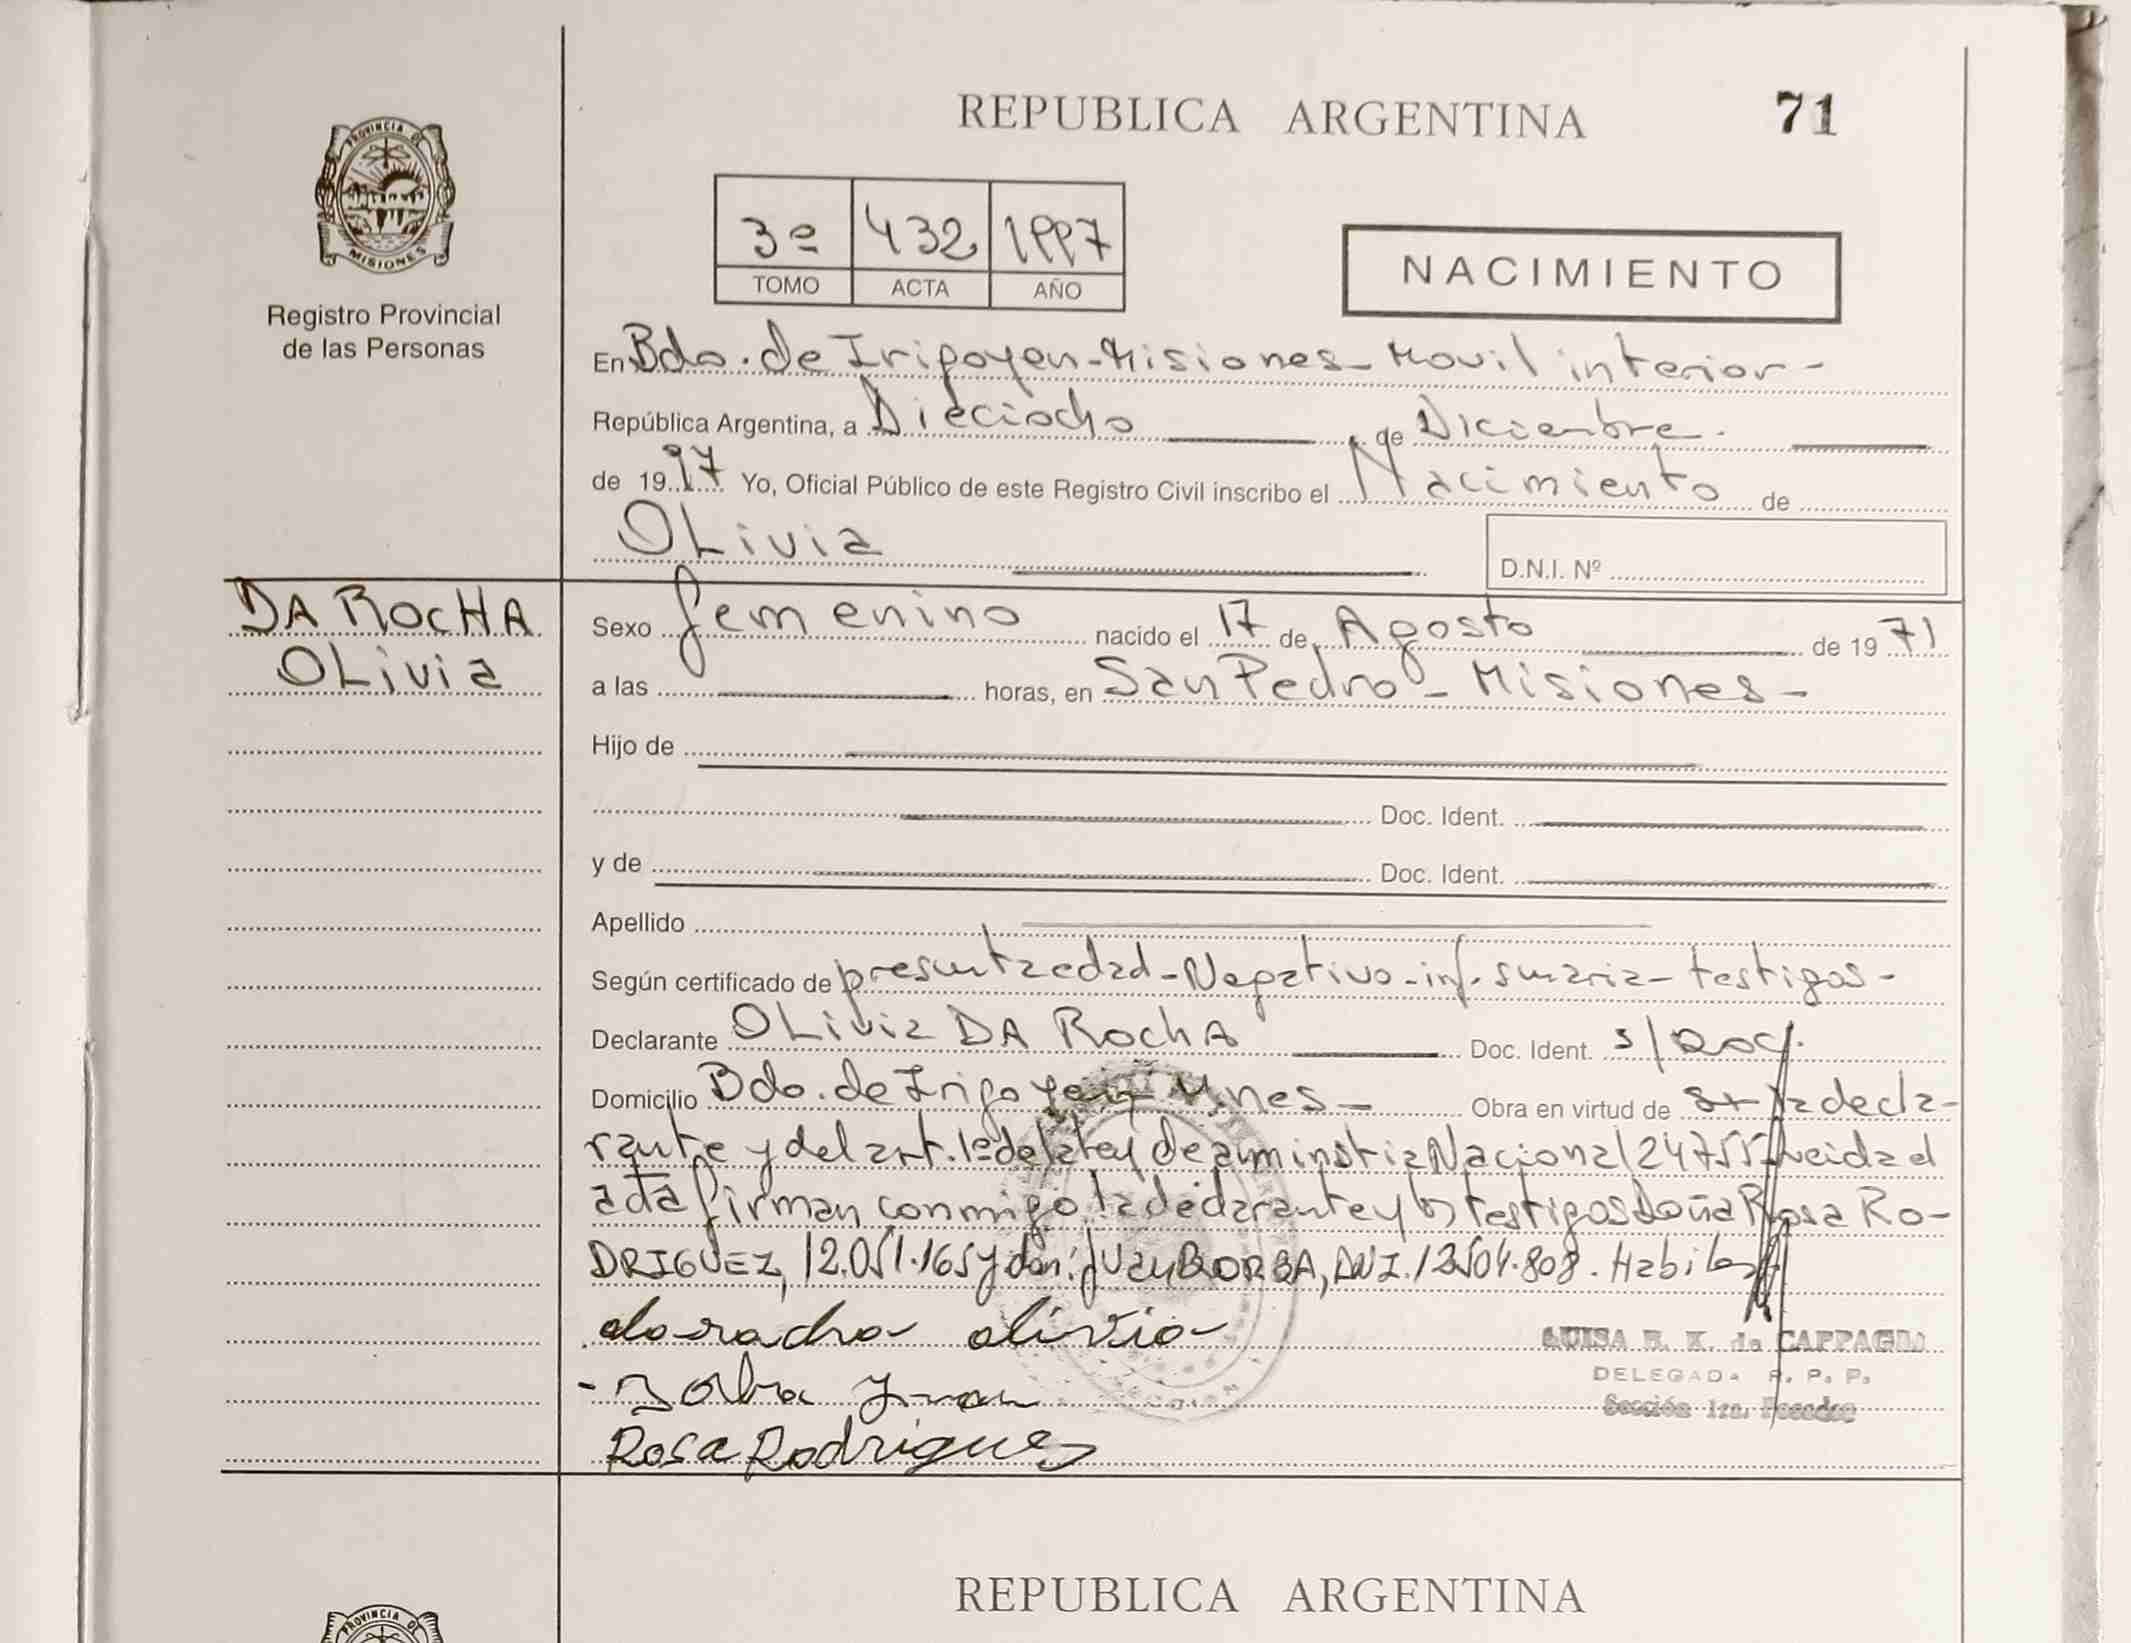 REPUBLICA ARGENTINA 71
PROVINCIA DE
MISIONES
Registro Provincial
de las Personas
3º 432 1997
TOMO ACTA AÑO
NACIMIENTO
En Bdo. de Irigoyen - Misiones - Movil interior -
República Argentina, a Dieciocho de Diciembre.
de 19 97 Yo, Oficial Público de este Registro Civil inscribo el Nacimiento de
OLivia
D.N.I. Nº
DA ROCHA
OLivia
Sexo femenino nacido el 17 de Agosto de 19 71
a las horas, en San Pedro - Misiones -
Hijo de
Doc. Ident.
y de Doc. Ident.
Apellido
Según certificado de presunta edad - Negativo - inf. sumaria - testigos -
Declarante OLivia DA RochA Doc. Ident. s/Doc.
Domicilio Bdo. de Irigoyen Mnes - Obra en virtud de ser la decla-
rante y del art. 1º de la Ley de amnistia Nacional 24755 Leida el
acta firman conmigo la declarante y los testigos Doña Rosa Ro-
DRIGUEZ, 12.051.165 y don: Juan BORBA, DNI. 13504.808. Habiles
da racha olivia
- Borba Juan
Rosa Rodrigues
LUISA de
DELEGADA R. P. P.
Sección 1ra. Posadas
REPUBLICA ARGENTINA
PROVINCIA DE